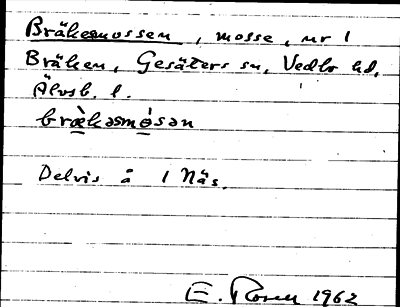 Bräkesmossen, mosse, nr 1
Bräken, Gesäters sn, Vedbo hd,
Älvsb. l.
bræ̀kəsmósən
Delvis å 1 Näs.
E. Rosen 1962